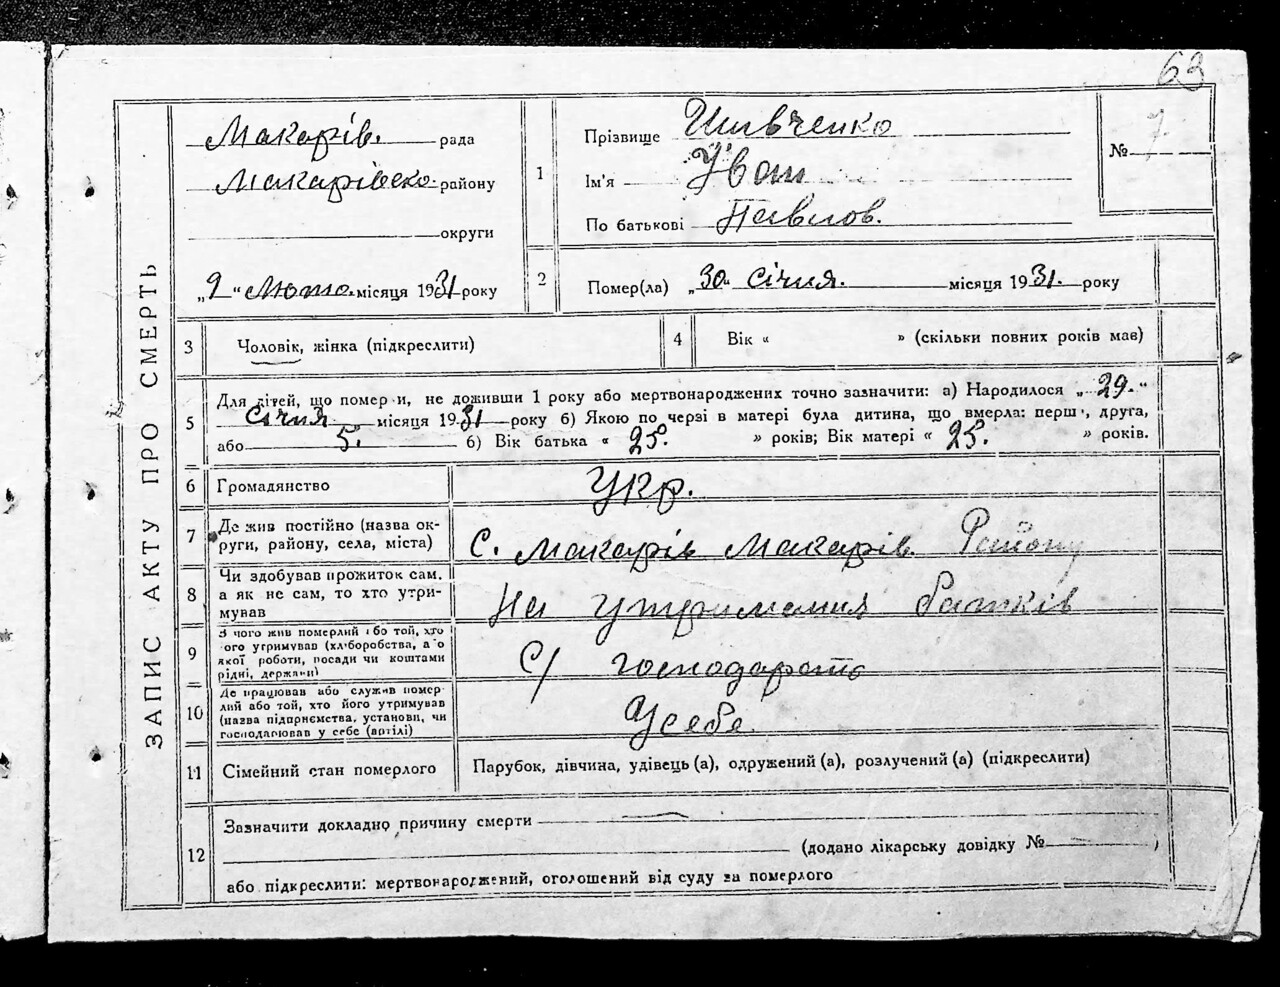 63
ЗАПИС АКТУ ПРО СМЕРТЬ
Макарів. рада
Макарівско. району
округи
„9“ Люто. місяця 1931 року
1
Прізвище Шивченко
Ім'я Іван
По батькові Павлов.
№ 7
2
Помер(ла) „30“ Січня. місяця 1931. року
3
Чоловік, жінка (підкреслити)
4
Вік « » (скільки повних років мав)
5
Для дітей, що померли, не доживши 1 року або мертвонароджених точно зазначити: а) Народилося „29.“
Січня місяця 1931 року б) Якою по черзі в матері була дитина, що вмерла: перша, друга,
або 5. б) Вік батька « 25. » років; Вік матері « 25. » років.
6
Громадянство
Укр.
7
Де жив постійно (назва ок-
руги, району, села, міста)
С. Макарів Макарів. Району
8
Чи здобував прожиток сам.
а як не сам, то хто утри-
мував
На утримання батків
9
З чого жив померлий або той, хто
його утримував (хліборобства, або
якої роботи, посади чи коштами
рідні, держави)
С/ господарств
10
Де працював або служив помер-
лий або той, хто його утримував
(назва підприємства, установи, чи
господарював у себе (артілі)
У себе
11
Сімейний стан померлого
Парубок, дівчина, удівець (а), одружений (а), розлучений (а) (підкреслити)
12
Зазначити докладно причину смерти
(додано лікарську довідку № )
або підкреслити: мертвонароджений, оголошений від суду за померлого